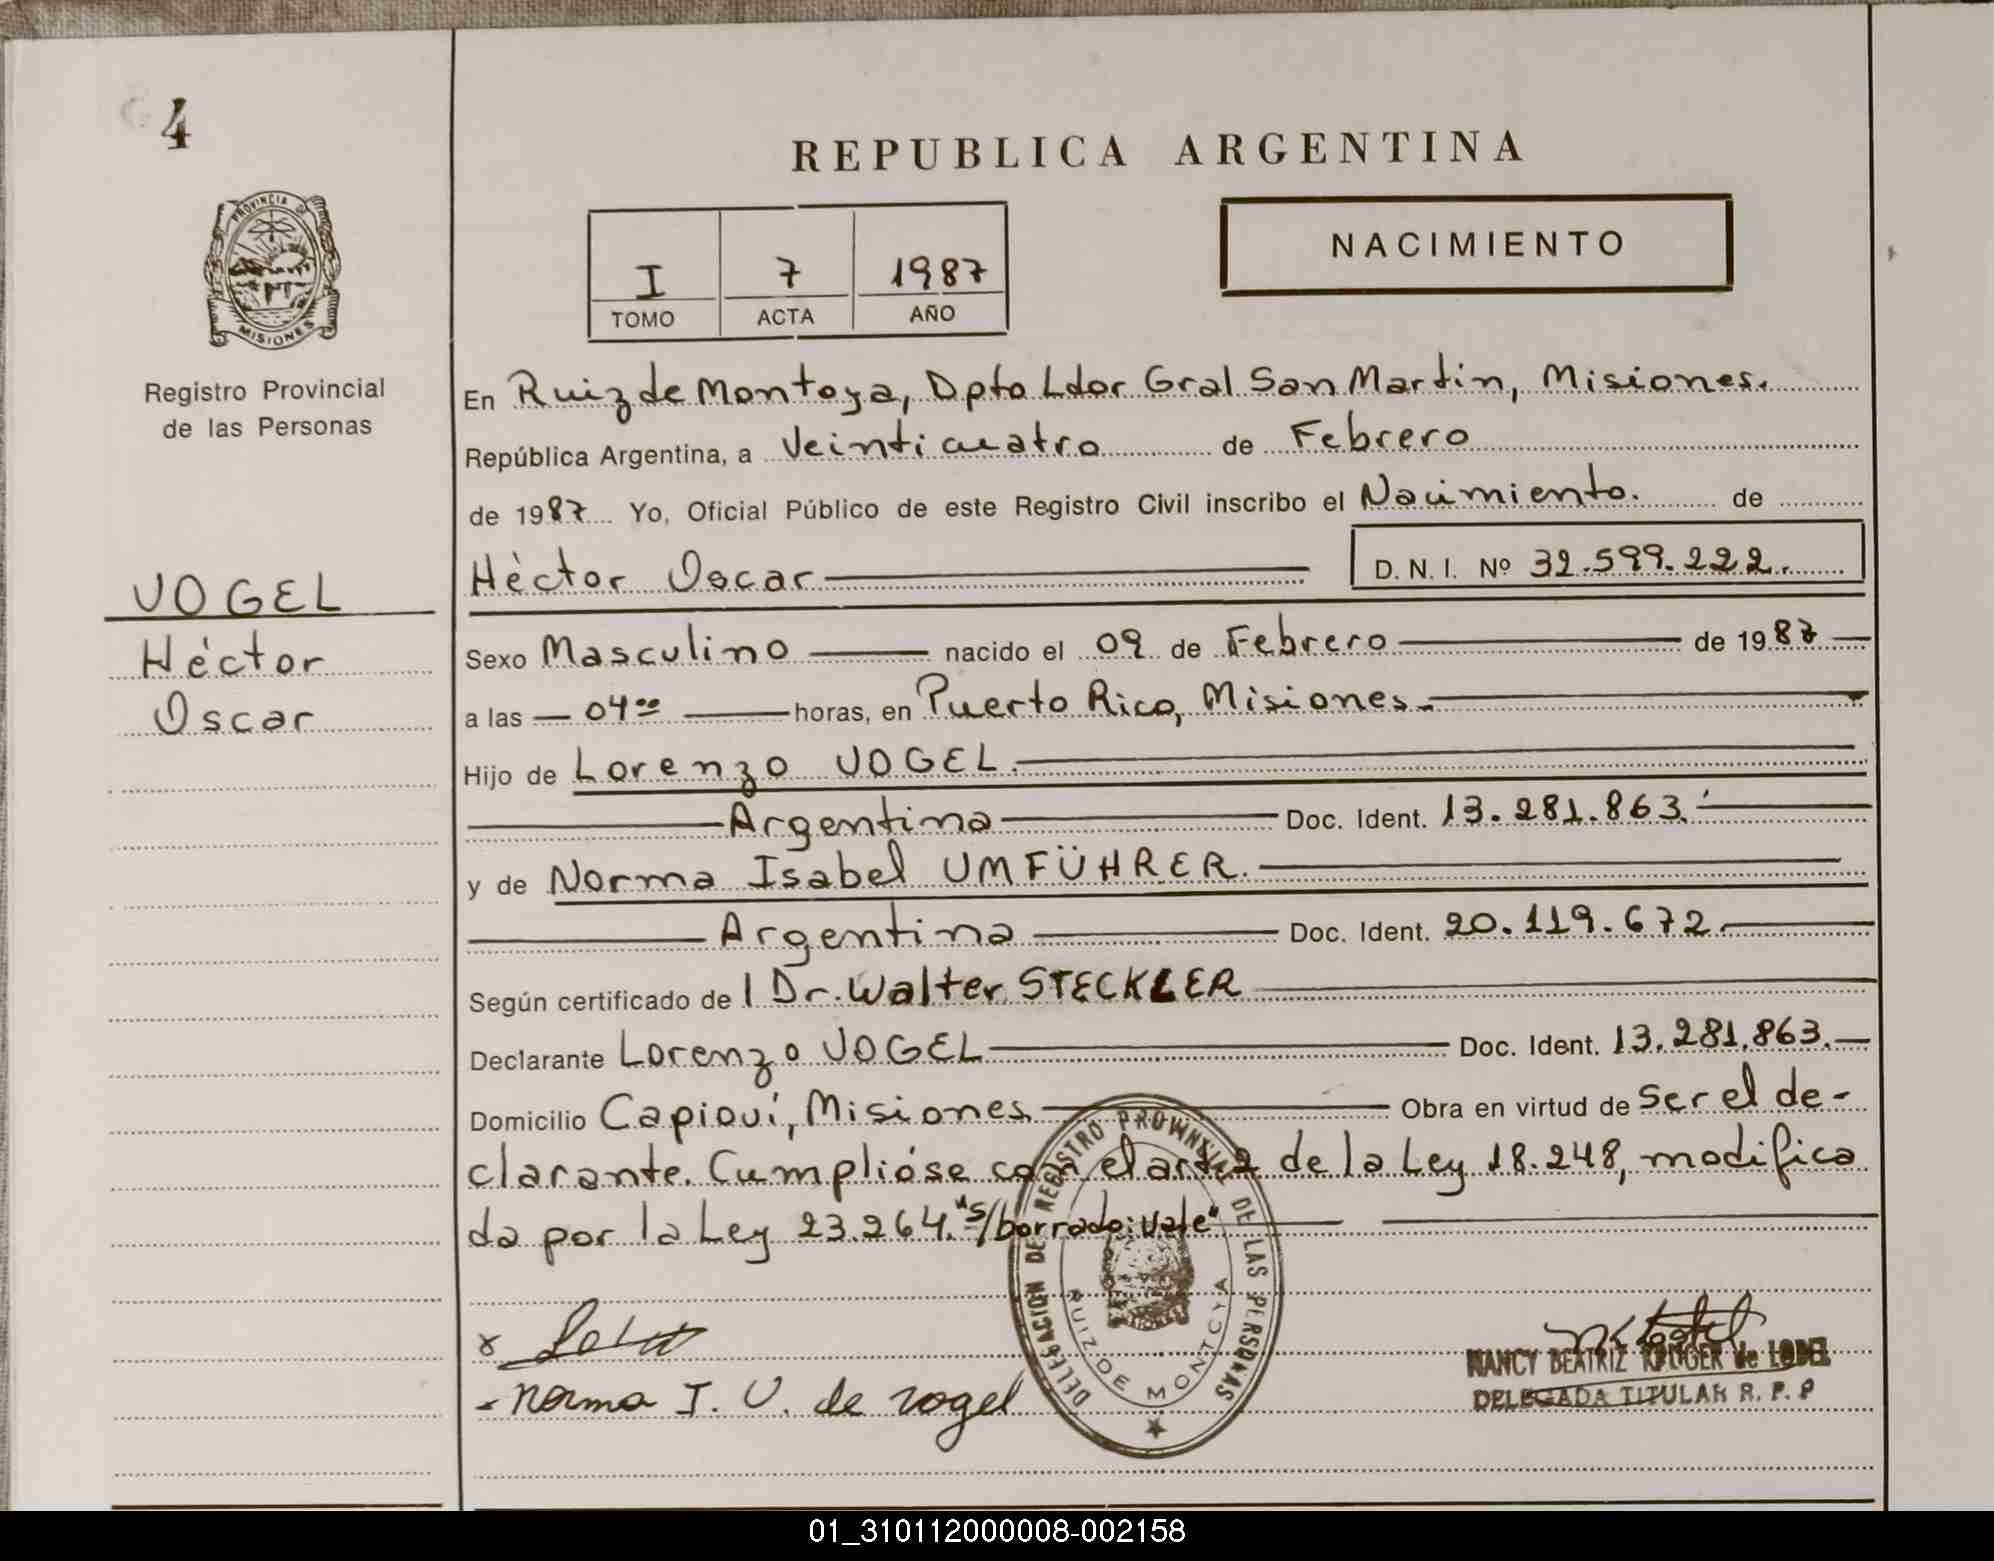 4
REPUBLICA ARGENTINA
PROVINCIA DE
MISIONES
I 7 1987
TOMO ACTA AÑO
NACIMIENTO
Registro Provincial
de las Personas
VOGEL
Héctor
Oscar
En Ruiz de Montoya, Dpto Ldor Gral San Martin, Misiones.
República Argentina, a Veinticuatro de Febrero
de 1987 Yo, Oficial Público de este Registro Civil inscribo el Nacimiento. de
Hèctor Oscar D. N. I. Nº 32.599.222.
Sexo Masculino nacido el 09 de Febrero de 1987
a las 04ºº horas, en Puerto Rico, Misiones.
Hijo de Lorenzo VOGEL.
Argentina Doc. Ident. 13.281.863.
y de Norma Isabel UMFÜHRER.
Argentina Doc. Ident. 20.119.672
Según certificado de l Dr. Walter STECKLER
Declarante Lorenzo VOGEL Doc. Ident. 13.281.863.
Domicilio Capioví, Misiones. Obra en virtud de ser el de-
clarante. Cumplióse con el art. 2 de la Ley 18.248, modifica
da por la Ley 23.264. "s/borrado: vale"
DELEGACION DE REGISTRO PROVINCIAL DE LAS PERSONAS
RUIZ DE MONTOYA
Norma I. U. de Vogel
NANCY BEATRIZ KRUGER de LODEL
DELEGADA TITULAR R. P. P
01_310112000008-002158